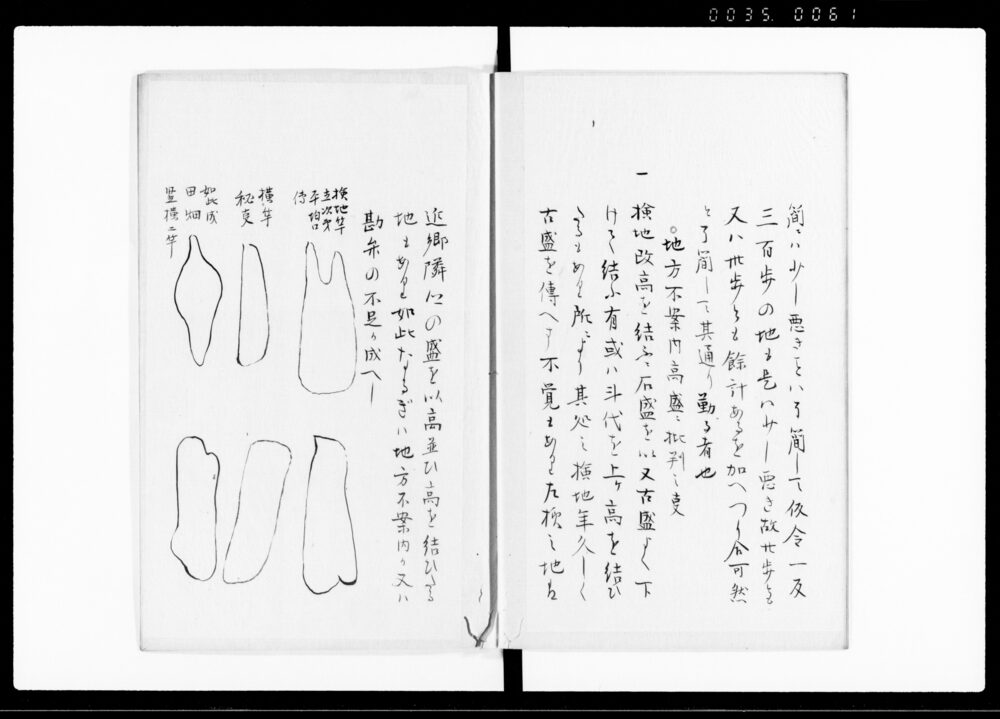 0035. 0061
簡ニハ少し悪きをハ了簡して仮令一反
三百歩の地も是ハ少し悪き故廿歩も
又ハ卅歩も餘計あるを加へつり合可然
と了簡して其通り勤る者也
○地方不案内高盛ニ批判之叓
一
検地改高を結ふニ石盛を以又古盛よく下
けて結ふ有或ハ斗代を上ケ高を結ひ
たるもあり所により其処之検地年久しく
古盛を傳へす不覚もあり左様之地は
近郷隣他の盛を以高並ひ高を結ひたる
地もあり如此たるぎハ地方不案内か又ハ
勘弁の不足か成へし
検地竿
立次第
平均口
傳
横竿
秘叓
如此成
田畑
竪横二竿